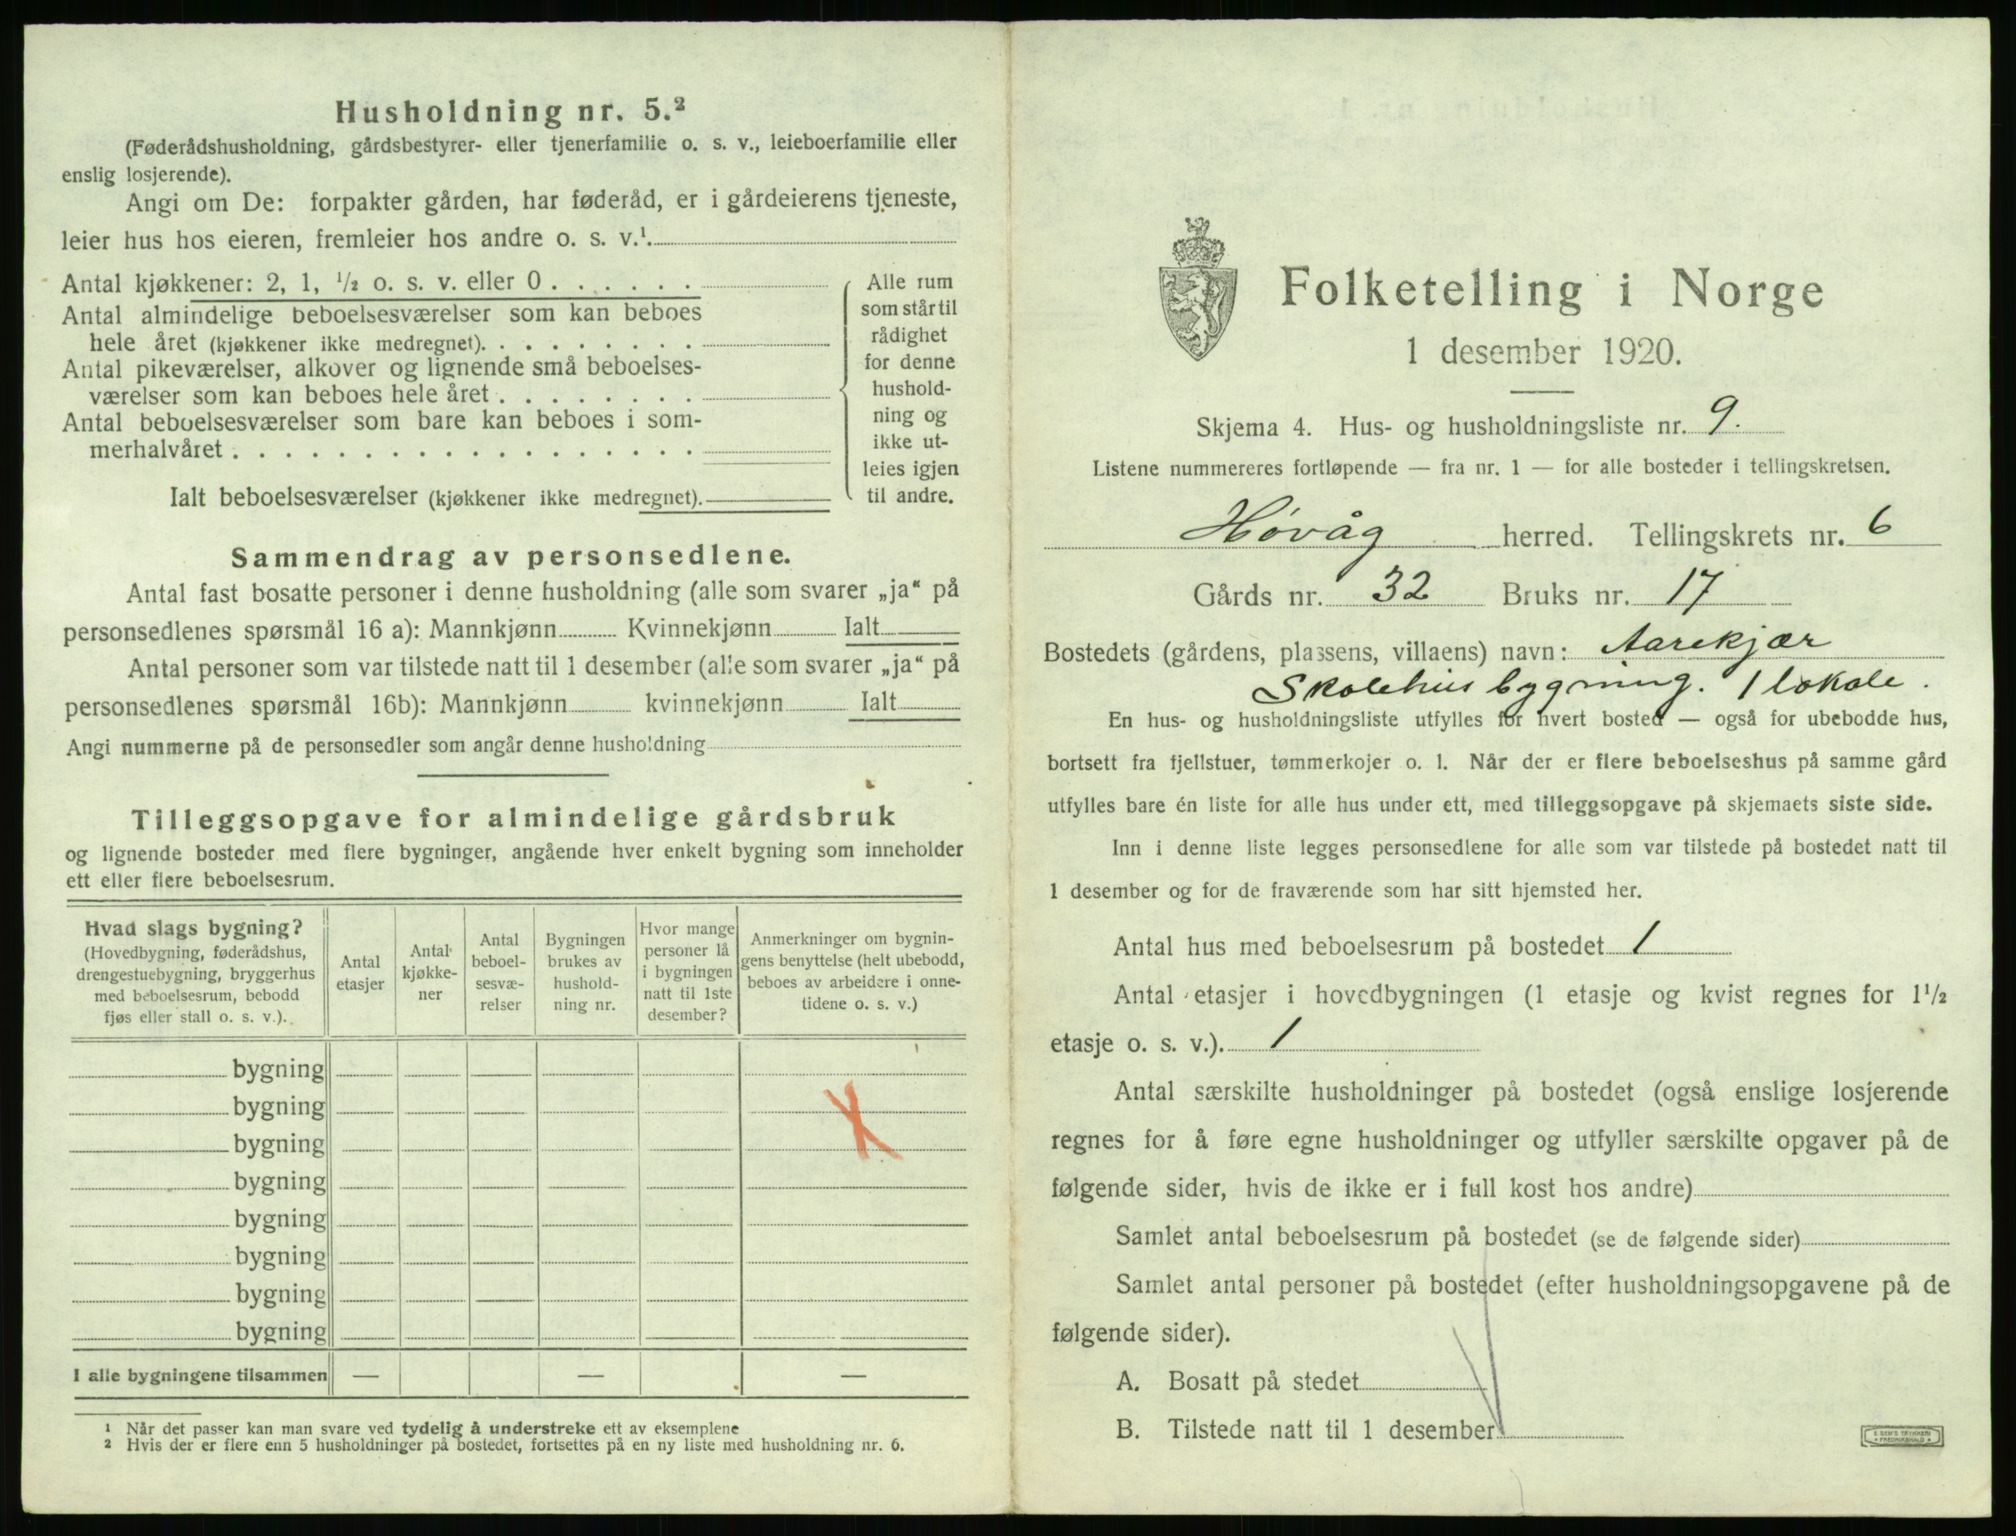 Husholdning nr. 5.²
(Føderådshusholdning, gårdsbestyrer- eller tjenerfamilie o. s. v., leieboerfamilie eller
enslig losjerende).
Angi om De: forpakter gården, har føderåd, er i gårdeierens tjeneste,
leier hus hos eieren, fremleier hos andre o. s. v.¹.
Antal kjøkkener: 2, 1, ½ o. s. v. eller 0 . . . . . .
Antal almindelige beboelsesværelser som kan beboes
hele året (kjøkkener ikke medregnet). . . . . . . . .
Antal pikeværelser, alkover og lignende små beboelses-
værelser som kan beboes hele året . . . . . . . .
Antal beboelsesværelser som bare kan beboes i som-
merhalvåret . . . . . . . . . . . . . . . . . .
Ialt beboelsesværelser (kjøkkener ikke medregnet).
Alle rum
som står til
rådighet
for denne
hushold-
ning og
ikke ut-
leies igjen
til andre.
Sammendrag av personsedlene.
Antal fast bosatte personer i denne husholdning (alle som svarer „ja“ på
personsedlenes spørsmål 16 a): Mannkjønn Kvinnekjønn Ialt
Antal personer som var tilstede natt til 1 desember (alle som svarer „ja“ på
personsedlenes spørsmål 16b): Mannkjønn kvinnekjønn Ialt
Angi nummerne på de personsedler som angår denne husholdning
Tilleggsopgave for almindelige gårdsbruk
og lignende bosteder med flere bygninger, angående hver enkelt bygning som inneholder
ett eller flere beboelsesrum.
Hvad slags bygning?
(Hovedbygning, føderådshus,
drengestuebygning, bryggerhus
med beboelsesrum, bebodd
fjøs eller stall o. s. v.).
Antal
etasjer
Antal
kjøkke-
ner
Antal
beboel-
sesvæ-
relser
Bygningen
brukes av
hushold-
ning nr.
Hvor mange
personer lå
i bygningen
natt til 1ste
desember?
Anmerkninger om bygnin-
gens benyttelse (helt ubebodd,
beboes av arbeidere i onne-
tidene o. s. v.)
bygning
bygning
bygning
bygning
bygning
bygning
bygning
bygning
I alle bygningene tilsammen — — —
¹ Når det passer kan man svare ved tydelig å understreke ett av eksemplene
² Hvis der er flere enn 5 husholdninger på bostedet, fortsettes på en ny liste med husholdning nr. 6.
Folketelling i Norge
1 desember 1920.
Skjema 4. Hus- og husholdningsliste nr. 9.
Listene nummereres fortløpende — fra nr. 1 — for alle bosteder i tellingskretsen.
Høvåg herred. Tellingskrets nr. 6
Gårds nr. 32 Bruks nr. 17
Bostedets (gårdens, plassens, villaens) navn: Aarekjær
Skolehusbygning. 1 lokale.
En hus- og husholdningsliste utfylles for hvert bosted — også for ubebodde hus,
bortsett fra fjellstuer, tømmerkojer o. l. Når der er flere beboelseshus på samme gård
utfylles bare én liste for alle hus under ett, med tilleggsopgave på skjemaets siste side.
Inn i denne liste legges personsedlene for alle som var tilstede på bostedet natt til
1 desember og for de fraværende som har sitt hjemsted her.
Antal hus med beboelsesrum på bostedet 1
Antal etasjer i hovedbygningen (1 etasje og kvist regnes for 1½
etasje o. s. v.). 1
Antal særskilte husholdninger på bostedet (også enslige losjerende
regnes for å føre egne husholdninger og utfyller særskilte opgaver på de
følgende sider, hvis de ikke er i full kost hos andre)
Samlet antal beboelsesrum på bostedet (se de følgende sider)
Samlet antal personer på bostedet (efter husholdningsopgavene på de
følgende sider).
A. Bosatt på stedet
B. Tilstede natt til 1 desember